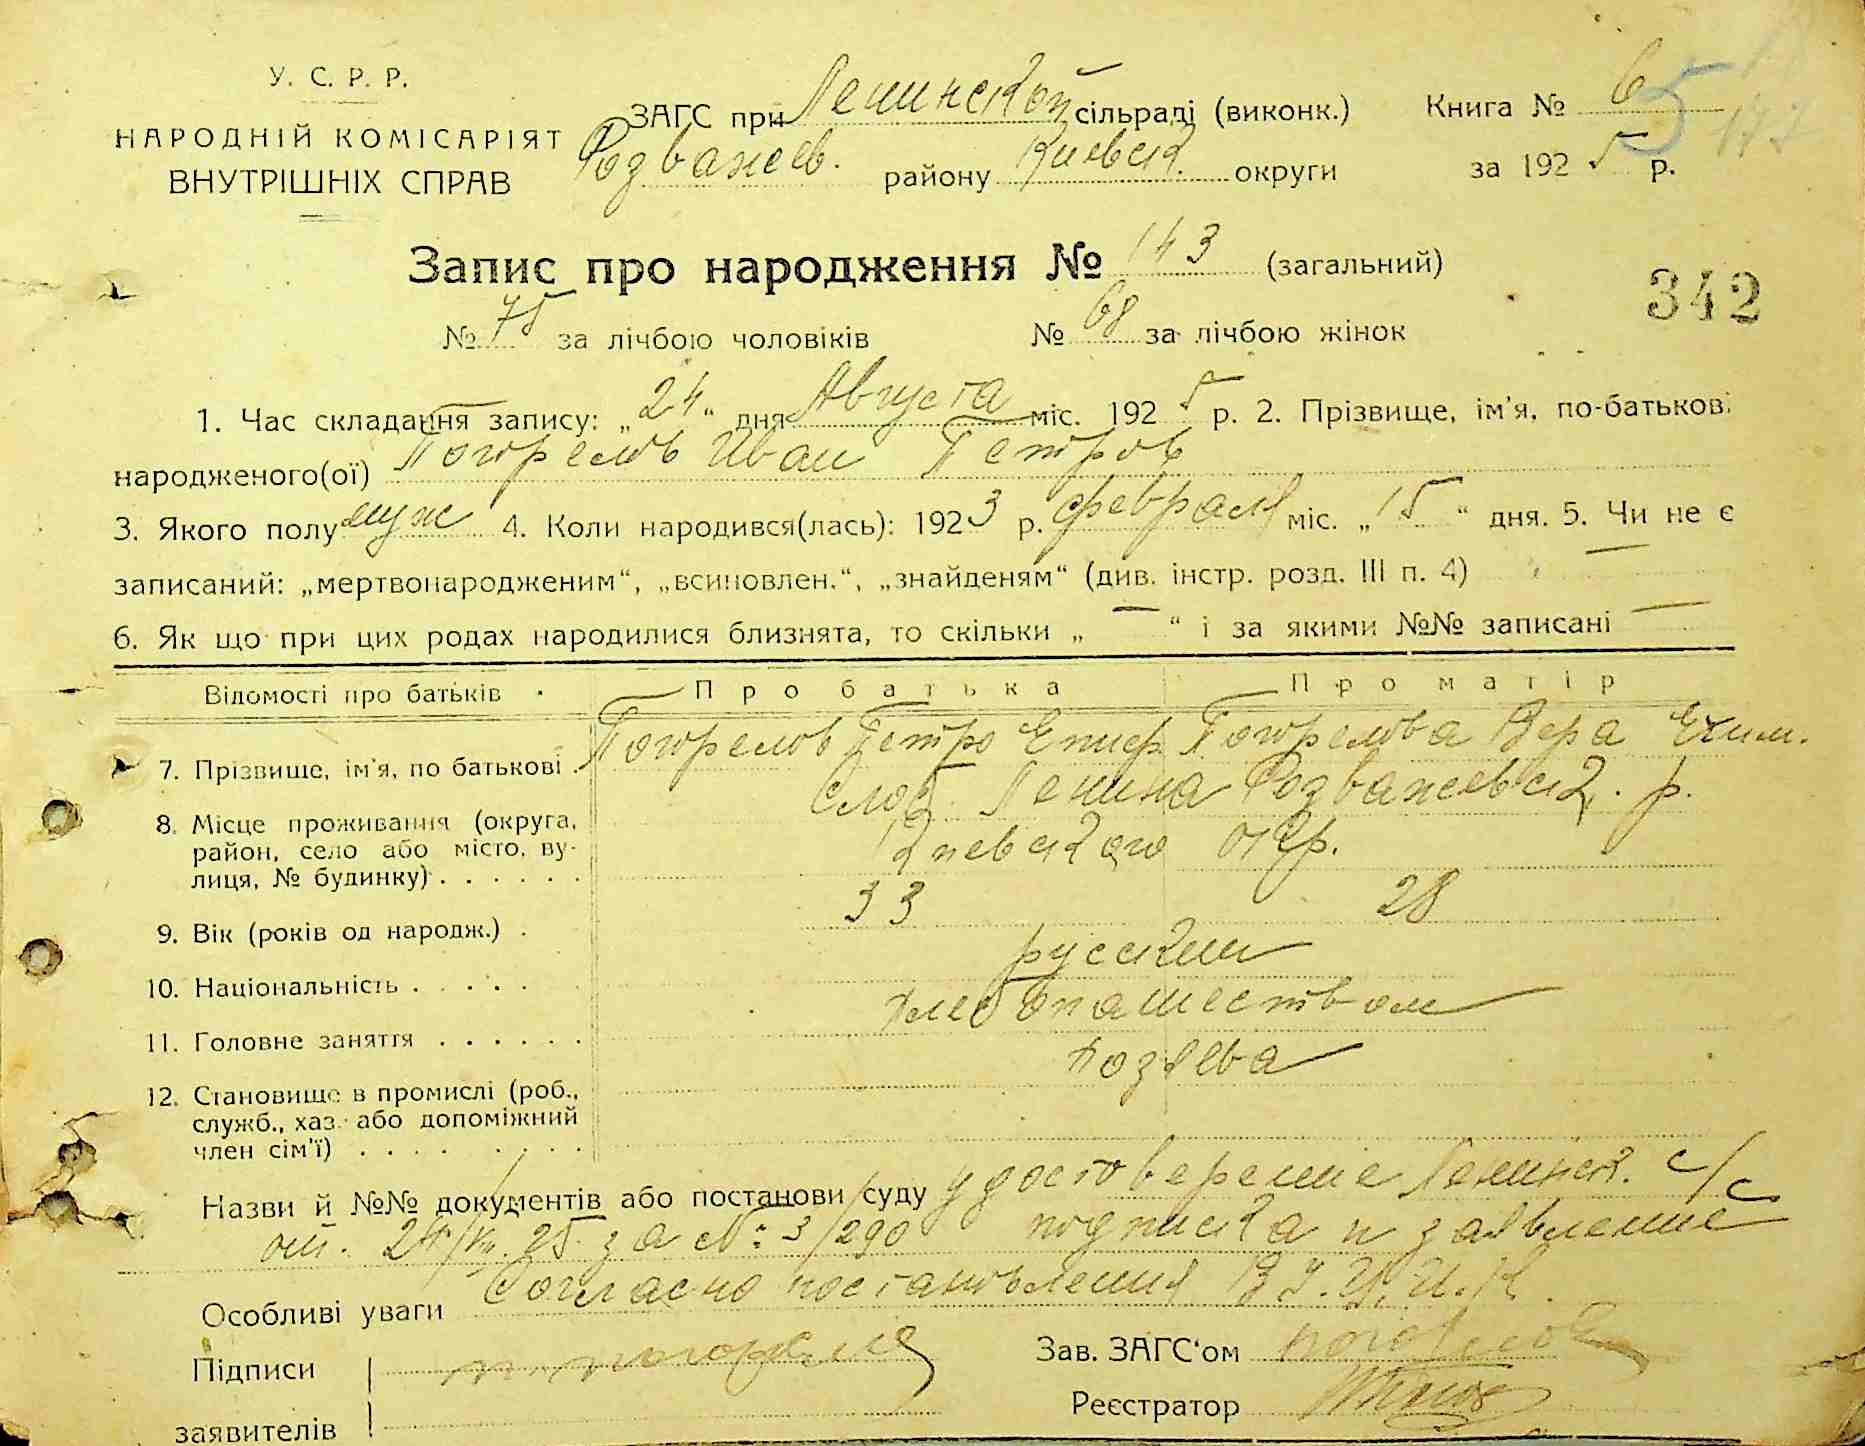 У. С. Р. Р.
НАРОДНІЙ КОМІСАРІЯТ
ВНУТРІШНІХ СПРАВ
ЗАГС при Ленинской сільраді (виконк.)
Розважев. району Киевск. округи
Книга № 6
за 1925 р.
Запис про народження № 143 (загальний)
342
№ 75 за лічбою чоловіків № 68 за лічбою жінок
1. Час складання запису: „24" дня Августа міс. 1925 р. 2. Прізвище, ім'я, по-батькові
народженого(ої) Погорелов Иван Петров
3. Якого полу муж 4. Коли народився(лась): 1923 р. февраля міс. „15" дня. 5. Чи не є
записаний: „мертвонародженим", „всиновлен.", „знайденям" (див. інстр. розд. III п. 4) —
6. Як що при цих родах народилися близнята, то скільки „—" і за якими №№ записані —
Відомості про батьків Про батька Про матір
7. Прізвище, ім'я, по батькові Погорелов Петро Епиф. Погорелова Вера Еким.
8. Місце проживання (округа, Слоб. Ленина Розважевск. р.
район, село або місто, ву- Киевского окр.
лиця, № будинку)
9. Вік (років од народж.) 33 28
10. Національність русские
11. Головне заняття хлебопашеством
12. Становище в промислі (роб., хозяева
служб., хаз. або допоміжний
член сім'ї)
Назви й №№ документів або постанови суду удостоверение Ленинск. с/с
от. 24/VIII 25 за №: 3/290 подписка и заявление
Особливі уваги Согласно постановления В.У.Ц.И.К.
Підписи Зав. ЗАГС'ом
заявителів Реєстратор